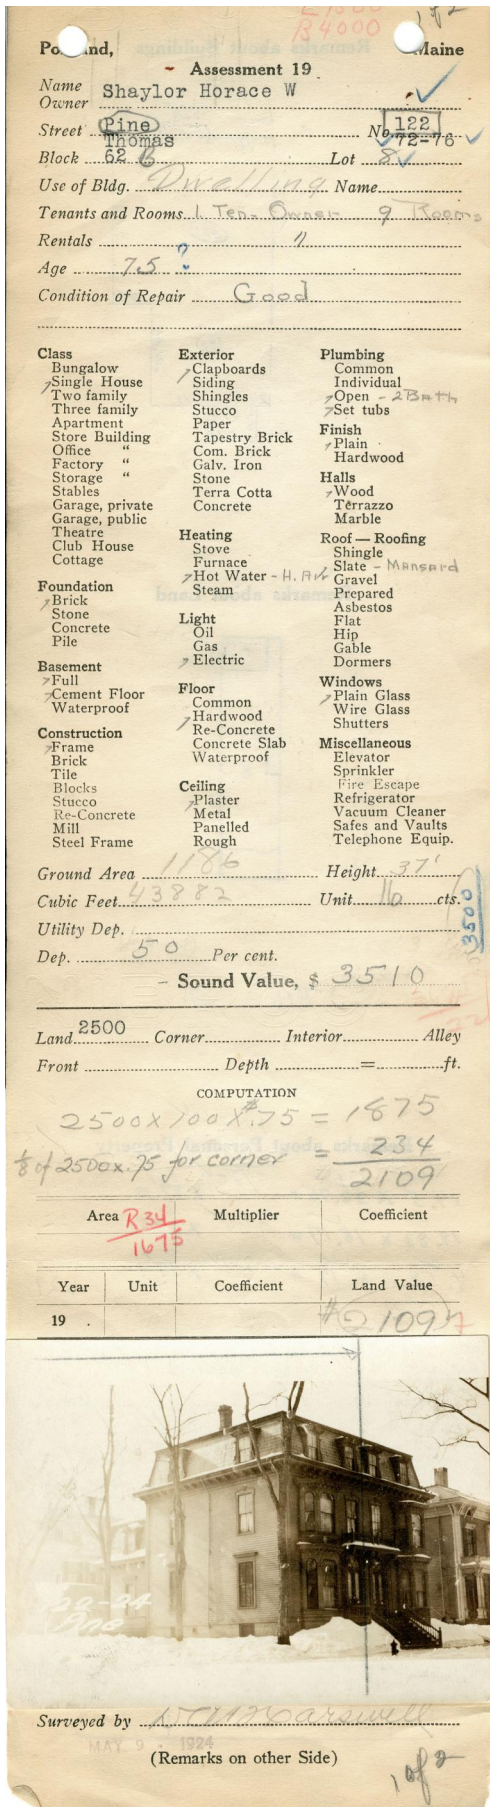 B4000
1 of 2
Portland, Maine
Assessment 19
Name
Owner Shaylor Horace W
Street Pine No. 122
Thomas 72-76
Block 62 B Lot 8
Use of Bldg. Dwelling Name
Tenants and Rooms 1 Ten- Owner 9 Rooms
Rentals "
Age 75 ?
Condition of Repair Good
Class
Bungalow
Single House
Two family
Three family
Apartment
Store Building
Office "
Factory "
Storage "
Stables
Garage, private
Garage, public
Theatre
Club House
Cottage
Foundation
Brick
Stone
Concrete
Pile
Basement
Full
Cement Floor
Waterproof
Construction
Frame
Brick
Tile
Blocks
Stucco
Re-Concrete
Mill
Steel Frame
Exterior
Clapboards
Siding
Shingles
Stucco
Paper
Tapestry Brick
Com. Brick
Galv. Iron
Stone
Terra Cotta
Concrete
Heating
Stove
Furnace
Hot Water - H. Air
Steam
Light
Oil
Gas
Electric
Floor
Common
Hardwood
Re-Concrete
Concrete Slab
Waterproof
Ceiling
Plaster
Metal
Panelled
Rough
Plumbing
Common
Individual
Open - 2 Bath
Set tubs
Finish
Plain
Hardwood
Halls
Wood
Terrazzo
Marble
Roof — Roofing
Shingle
Slate - Mansard
Gravel
Prepared
Asbestos
Flat
Hip
Gable
Dormers
Windows
Plain Glass
Wire Glass
Shutters
Miscellaneous
Elevator
Sprinkler
Fire Escape
Refrigerator
Vacuum Cleaner
Safes and Vaults
Telephone Equip.
Ground Area 1186 Height 37'
Cubic Feet 43882 Unit 16 cts.
3500
Utility Dep.
Dep. 50 Per cent.
- Sound Value, $ 3510
Land 2500 Corner Interior Alley
Front Depth = ft.
COMPUTATION
2500 x 100 x $.75 = 1875
1/8 of 2500 x .75 for corner = 234
2109
Area Multiplier Coefficient
R34
1675
Year Unit Coefficient Land Value
19 . #2109
Surveyed by
MAY 9 - 1924
(Remarks on other Side)
1 of 2